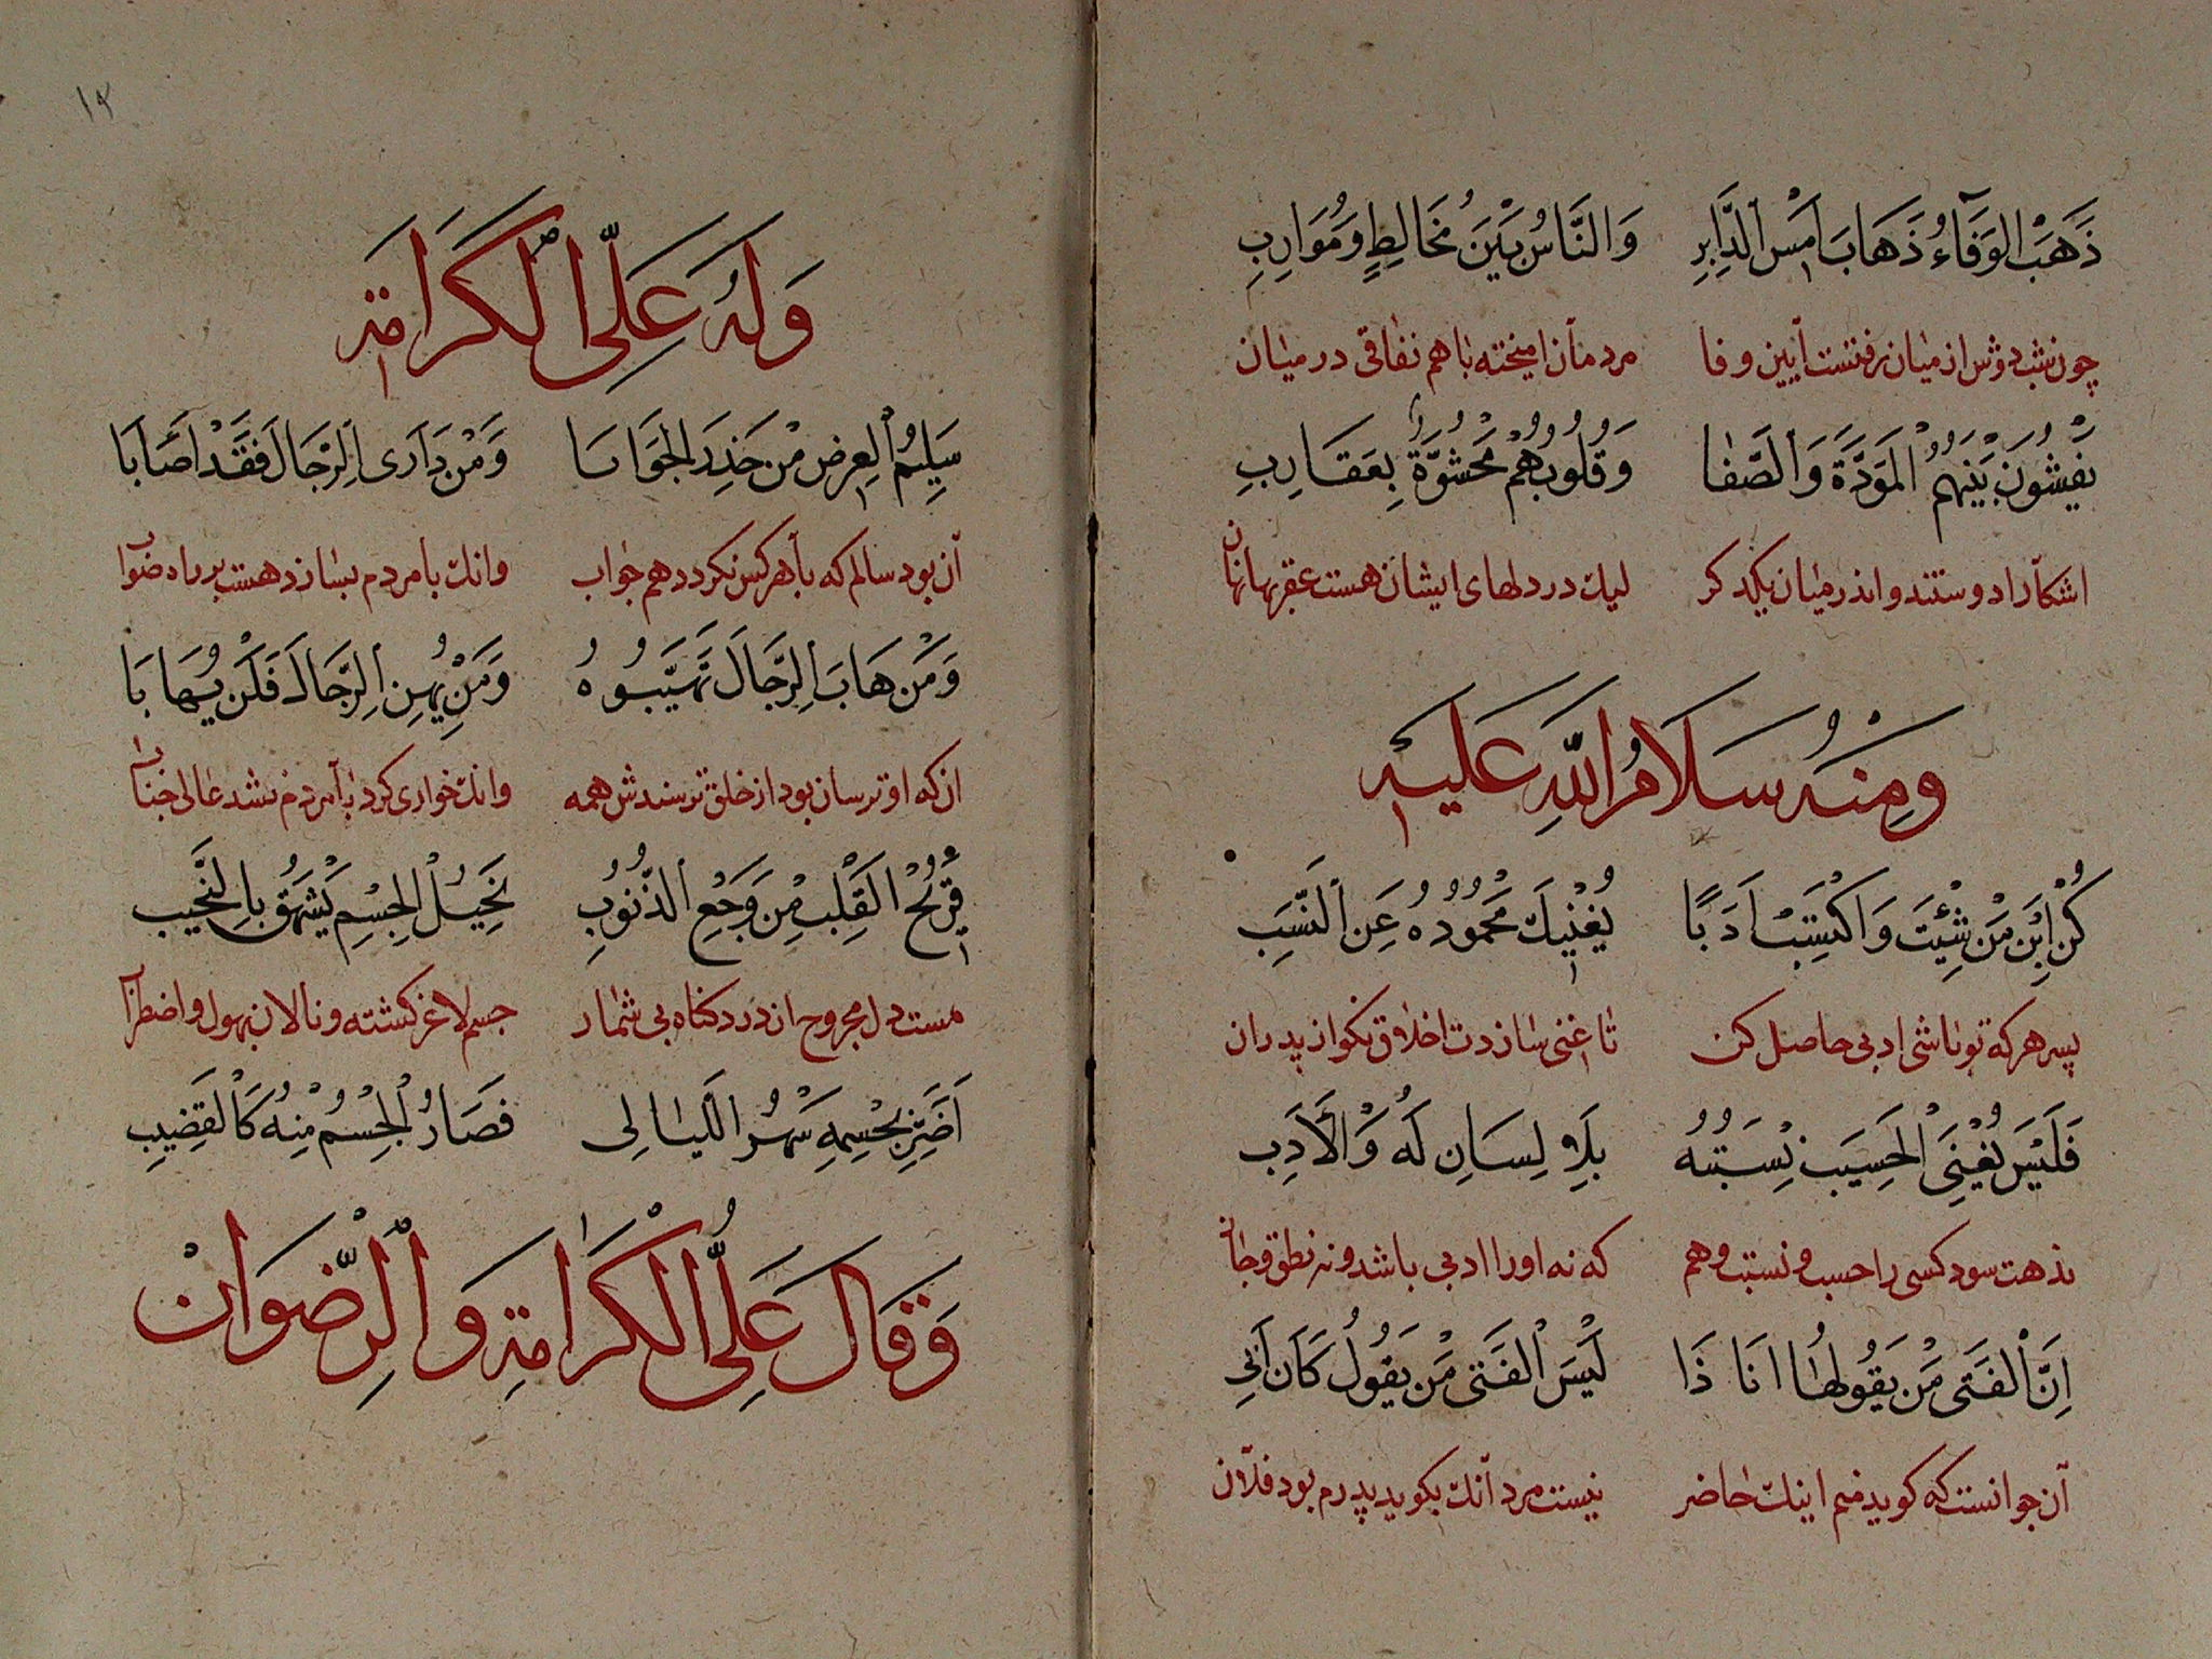 ذَهَبَ الوَفَآءُ ذَهَابَ اَمْسِ الدَّابِرِ وَالنَّاسُ بَيْنَ مُخَالِطٍ وَمُوَارِبِ
چون شب دوش از میان رفتست آیین وفا مردمان امیخته با هم نفاقی در میان
يَفْشُونَ بَيْنَهُمُ الْمَوَدَّةَ وَالصَّفَا وَقُلُوبُهُمْ مَحْشُوَّةٌ بِعَقَارِبِ
اشکارا دوستند و اندر میان یکدکر لیك در دلهای ایشان هست عقربها نهان
وَمِنْهُ سَلَامُ اللّٰهِ عَلَيْهِ
كُنِ ابْنَ مَنْ شِئْتَ وَاكْتَسِبْ اَدَبًا يُغْنِيكَ مَحْمُودُهُ عَنِ النَّسَبِ
پسر هرکه تو باشی ادبی حاصل کن تا غنی سازدت اخلاق نکو از پدران
فَلَيْسَ يُغْنِي الْحَسِيبَ نِسْبَتُهُ بِلَا لِسَانٍ لَهُ وَالْاَدَبِ
ندهت سود کسی را حسب و نسبت و هم که نه او را ادبی باشد و نه نطق و جنان
اِنَّ الْفَتَى مَنْ يَقُولُ هَا اَنَا ذَا لَيْسَ الْفَتَى مَنْ يَقُولُ كَانَ اَبِي
آن جوانست که کوید منم اینك حاضر نیست مرد آنك بکوید پدرم بود فلان
١٣
وَلَهُ عَلَيْهِ الْكَرَامَة
سَلِيمُ الْعِرْضِ مَنْ حَذِرَ الْجَوَابَا وَمَنْ دَارَى الرِّجَالَ فَقَدْ اَصَابَا
آن بود سالم که با هرکس نکردد هم جواب وانك با مردم بسازد هست بر راه صواب
وَمَنْ هَابَ الرِّجَالَ تَهَيَّبُوهُ وَمَنْ يُهِنِ الرِّجَالَ فَلَنْ يُهَابَا
ان که او ترسان بود از خلق ترسندش همه وانك خواری کرد با مردم نشد عالی جناب
قَرِيحُ الْقَلْبِ مِنْ وَجَعِ الذُّنُوبِ نَحِيلُ الْجِسْمِ يَشْهَقُ بِالنَّحِيبِ
هست دل مجروح از درد کناه بی شمار جسم لاغر کشته و نالان بهول و اضطراب
اَضَرَّ بِجِسْمِهِ سَهَرُ اللَّيَالِى فَصَارَ الْجِسْمُ مِنْهُ كَالْقَضِيبِ
وَقَالَ عَلَيْهِ الْكَرَامَةِ وَالرِّضْوَانْ